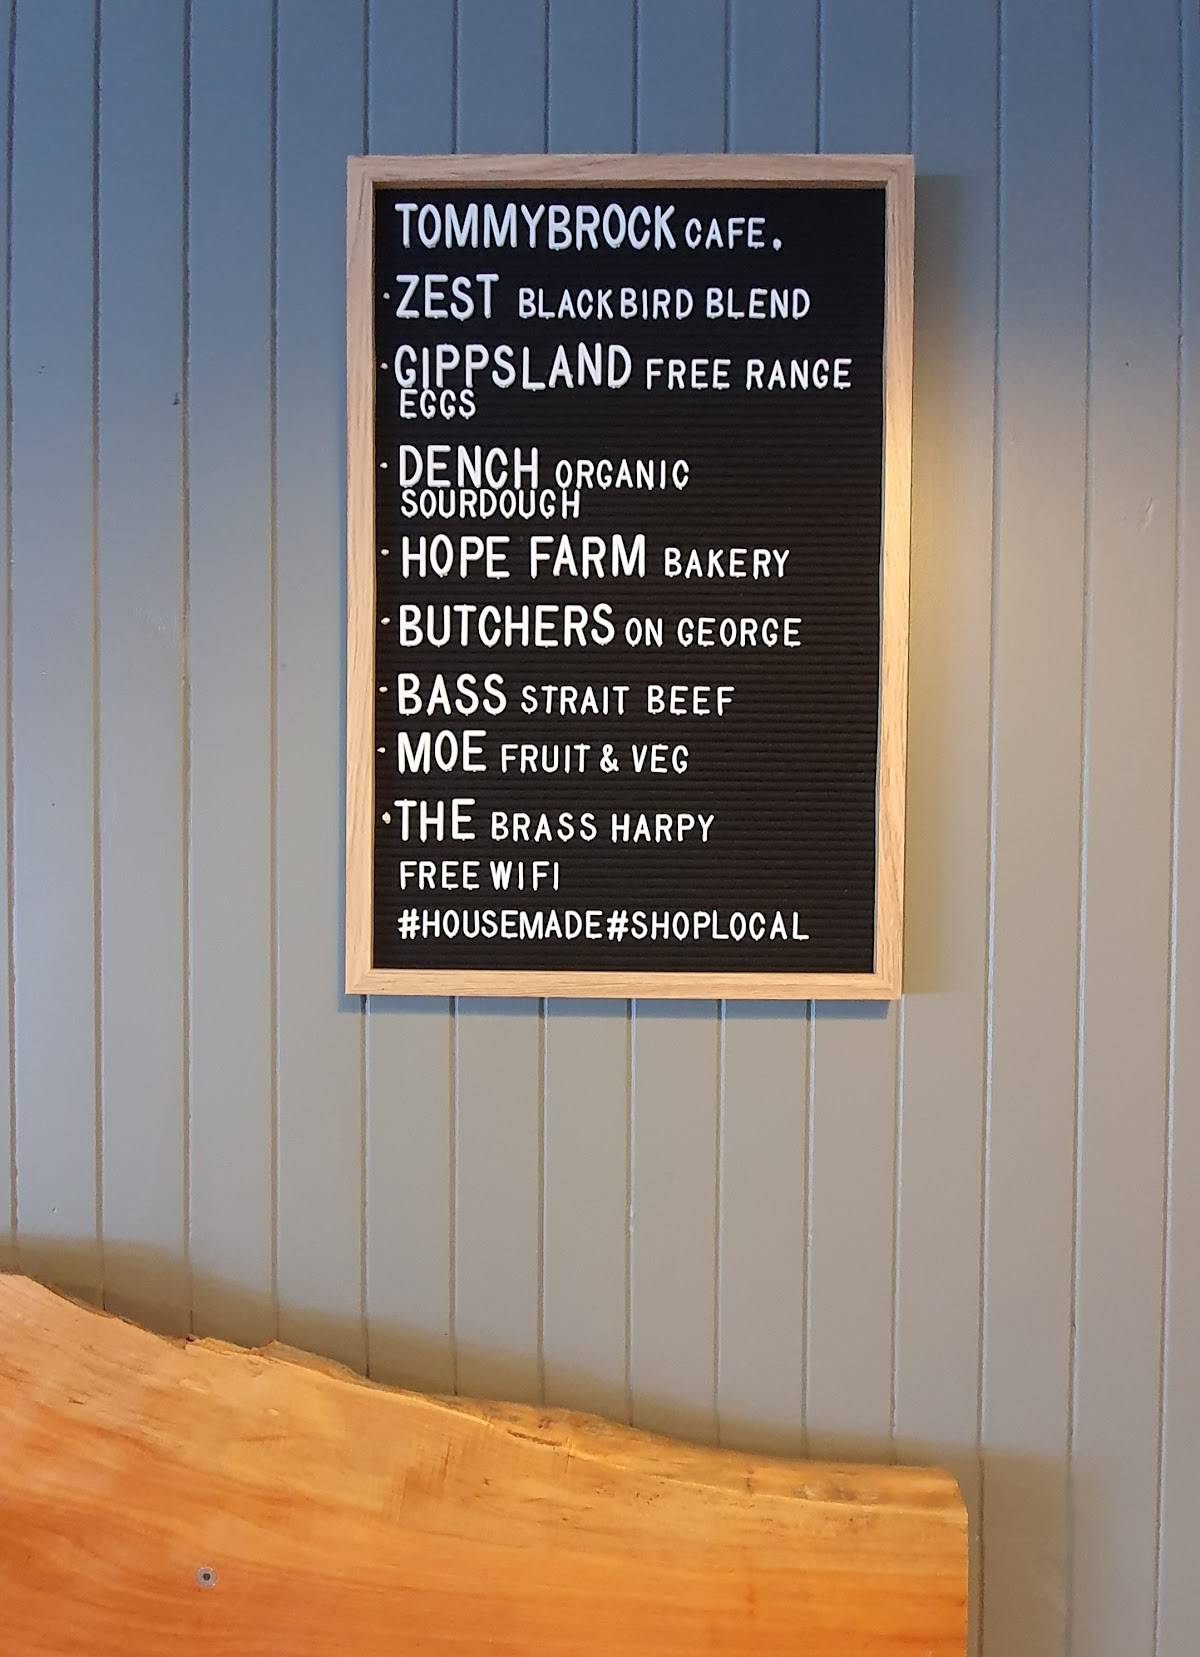 TOMMYBROCK CAFE.
·ZEST BLACKBIRD BLEND
·GIPPSLAND FREE RANGE
EGGS
·DENCH ORGANIC
SOURDOUGH
·HOPE FARM BAKERY
·BUTCHERS ON GEORGE
·BASS STRAIT BEEF
·MOE FRUIT & VEG
·THE BRASS HARPY
FREE WIFI
#HOUSEMADE#SHOPLOCAL